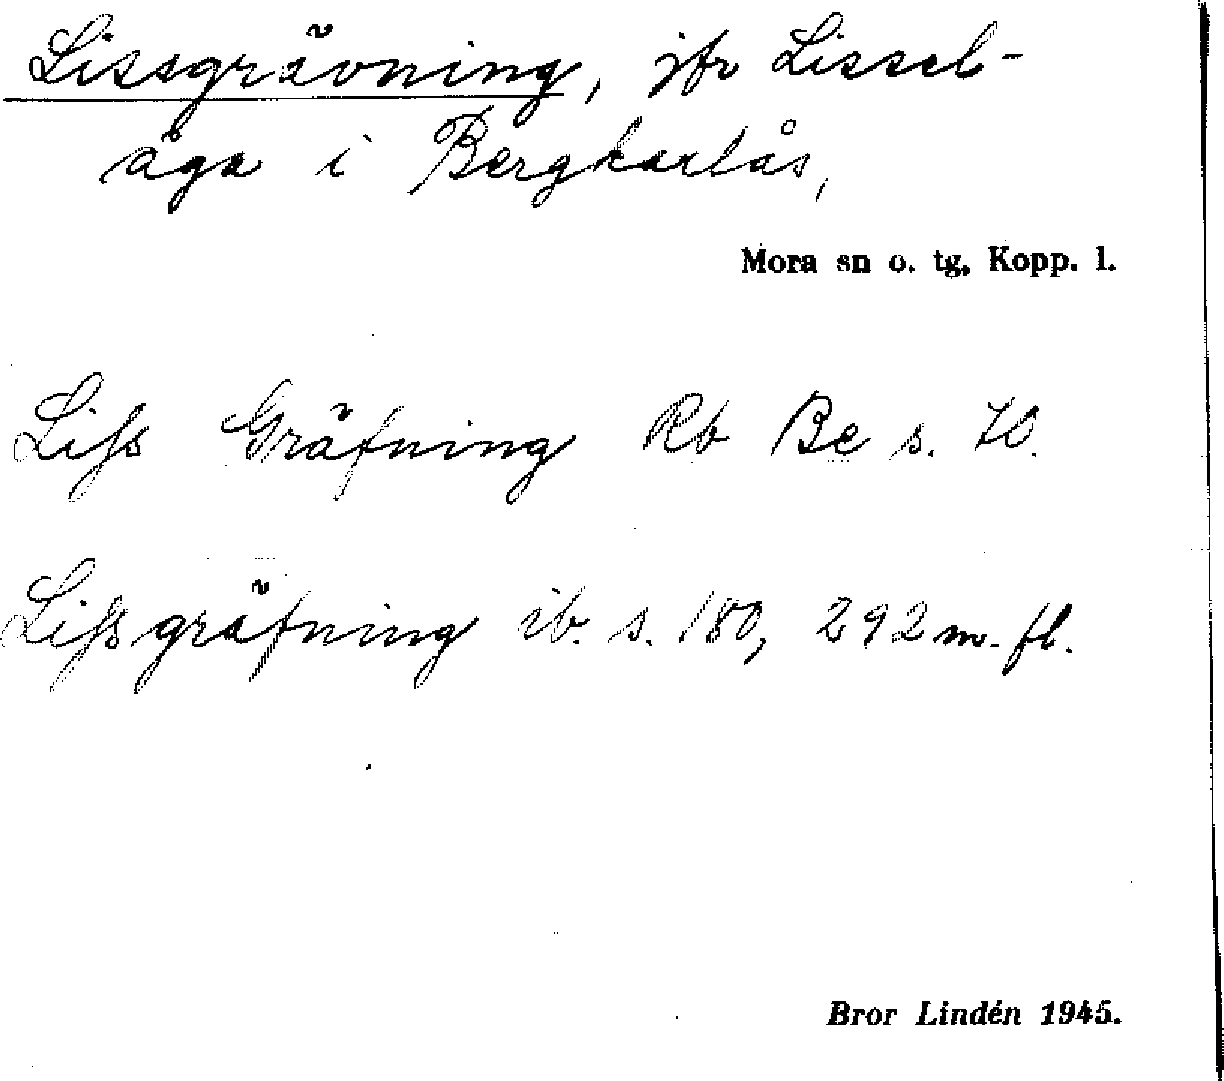 Lissgrävning, jfr Lissel-
åga i Bergkarlås,
Mora sn o. tg, Kopp. l.
Liſs Gräfning Rb Be s. 70.
Liſsgräfning ib. s. 180, 292 m. fl.
Bror Lindén 1945.